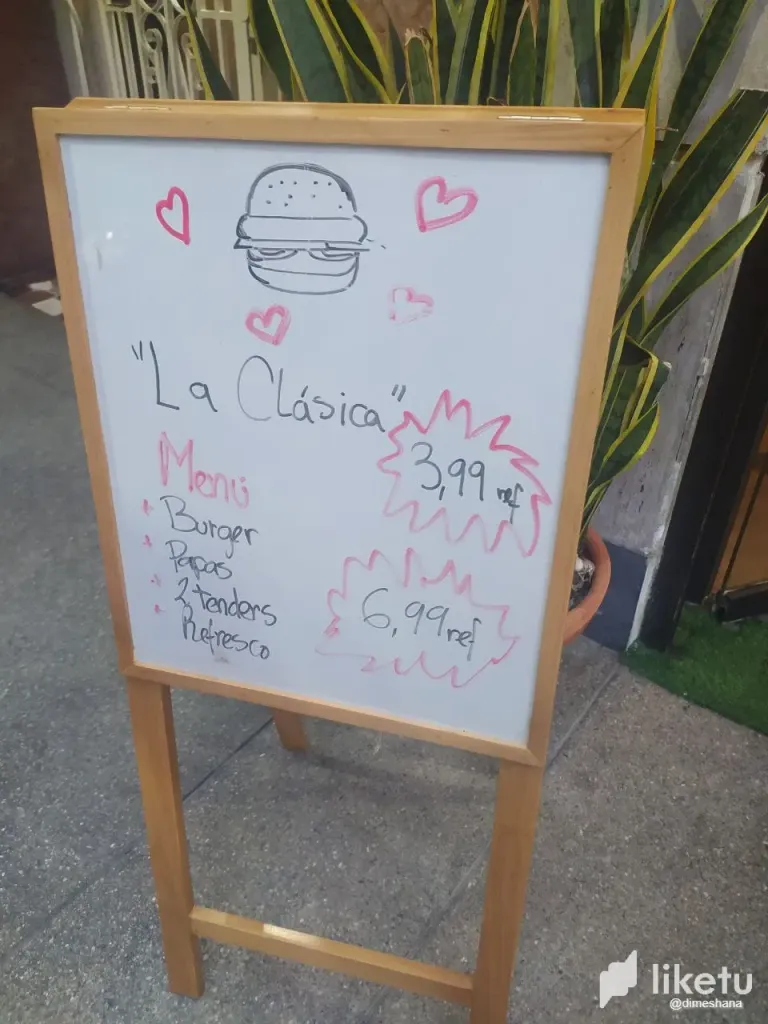 "La Clásica"
3,99 ref
Menú
Burger
Papas
2 tenders
Refresco
6,99 ref
liketu
@dimeshana